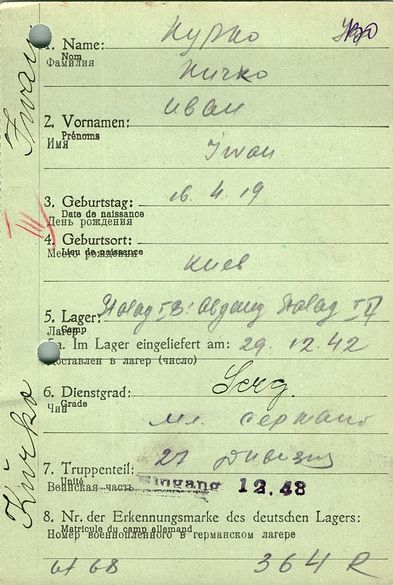 1. Name: Курко
Nom
Фамилия Kurko
2. Vornamen: иван
Prénoms
Имя Iwan
3. Geburtstag: 16.4.19
Date de naissance
День рождения
4. Geburtsort:
Lieu de naissance
Место рождения Киев
5. Lager: Stalag IB: Abgang Stalag
Camp
Лагерь
5a. Im Lager eingeliefert am: 29.12.42
Доставлен в лагерь (число)
6. Dienstgrad: Serg.
Grade
Чин мл. сержант
7. Truppenteil: 27 дивизия
Unité
Воинская часть Eingang 12.48
8. Nr. der Erkennungsmarke des deutschen Lagers:
Matricule du camp allemand
Номер военнопленного в германском лагере
364 R
Iwan
Kurko
III